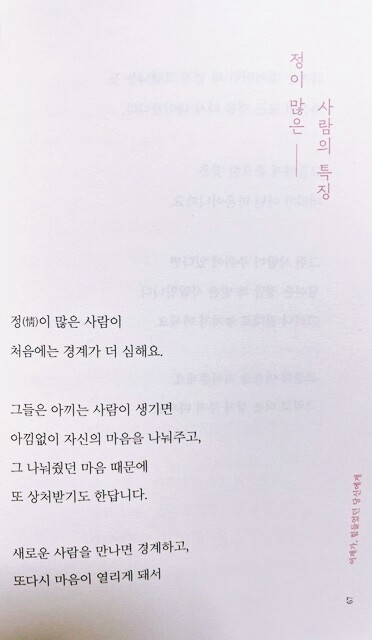 정이 많은 ——
사람의 특징
정(情)이 많은 사람이
처음에는 경계가 더 심해요.
그들은 아끼는 사람이 생기면
아낌없이 자신의 마음을 나눠주고,
그 나눠줬던 마음 때문에
또 상처받기도 한답니다.
새로운 사람을 만나면 경계하고,
또다시 마음이 열리게 돼서
힘들었던 당신에게
67